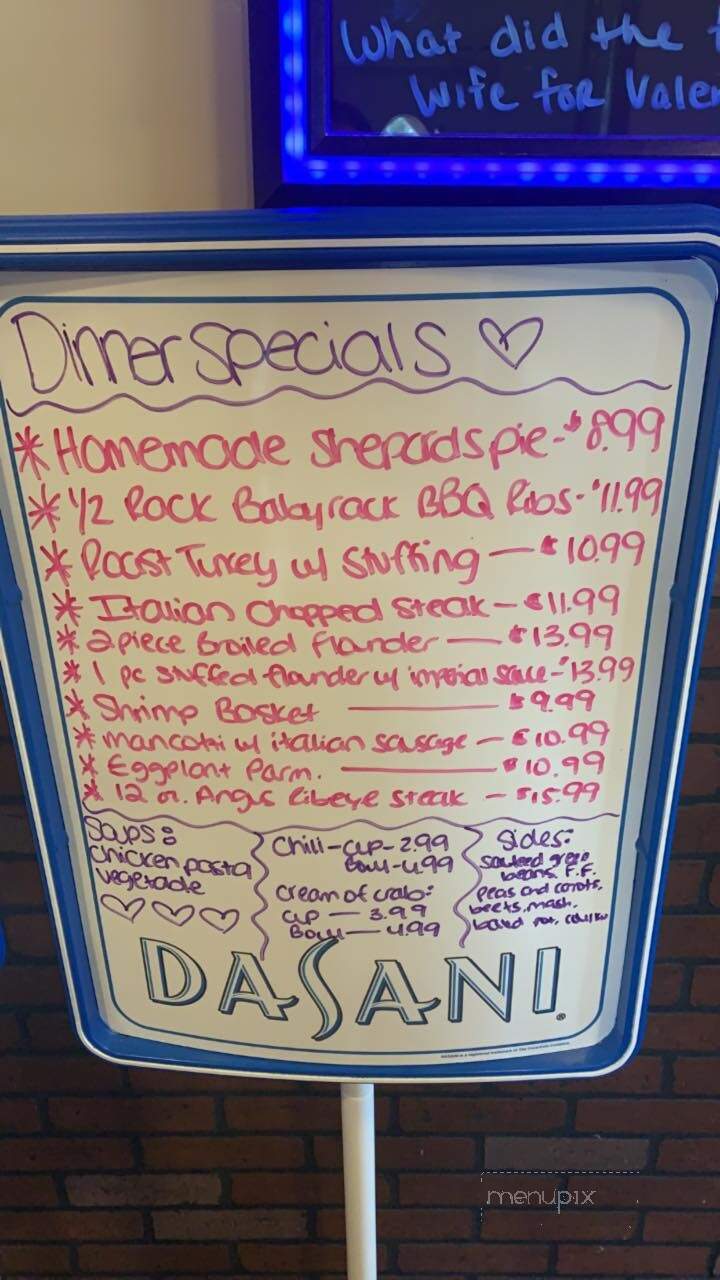 What did the
Wife for Valen
Dinner Specials
* Homemade Shepards pie - $8.99
* 1/2 Rack Babyrack BBQ Ribs - $11.99
* Roast Turkey w/ Stuffing — $10.99
* Italian Chopped Steak - $11.99
* 2 piece Broiled flounder — $13.99
* 1 pc stuffed flounder w/ imperial sauce - $13.99
* Shrimp Basket — $9.99
* mancotti w/ italian sausage - $10.99
* Eggplant Parm. — $10.99
* 12 oz. Angus Ribeye Steak - $15.99
Soups:
chicken pasta
vegetable
Chili - cup - 2.99
Bowl - 4.99
cream of crab:
cup — 3.99
Bowl — 4.99
Sides:
sauteed green
beans, F.F.
peas and carrots,
beets, mash,
baked pot,
DASANI
menupix